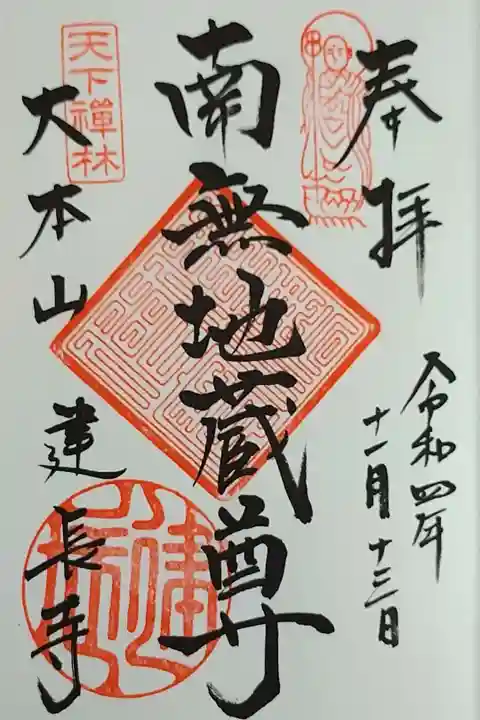 奉拝
令和四年
十一月十三日
南無地蔵尊
天下禅林
大本山 建長寺